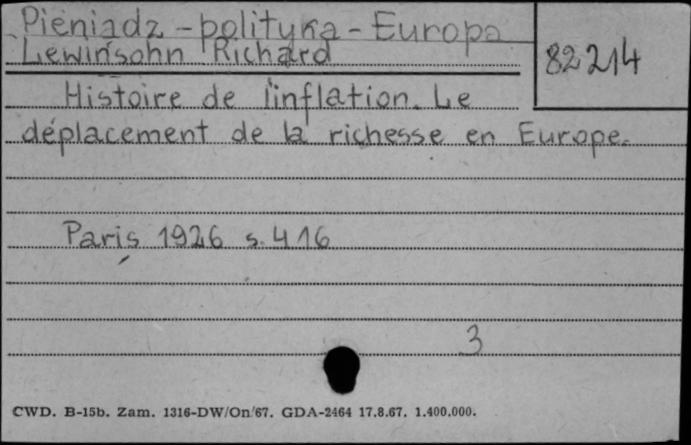 Pieniadz - polityka - Europa
Lewinsohn Richard
82214
Histoire de l'inflation. Le
déplacement de la richesse en Europe.
Paris 1926 s. 416
3
CWD. B-15b. Zam. 1316-DW/On/67. GDA-2464 17.8.67. 1.400.000.